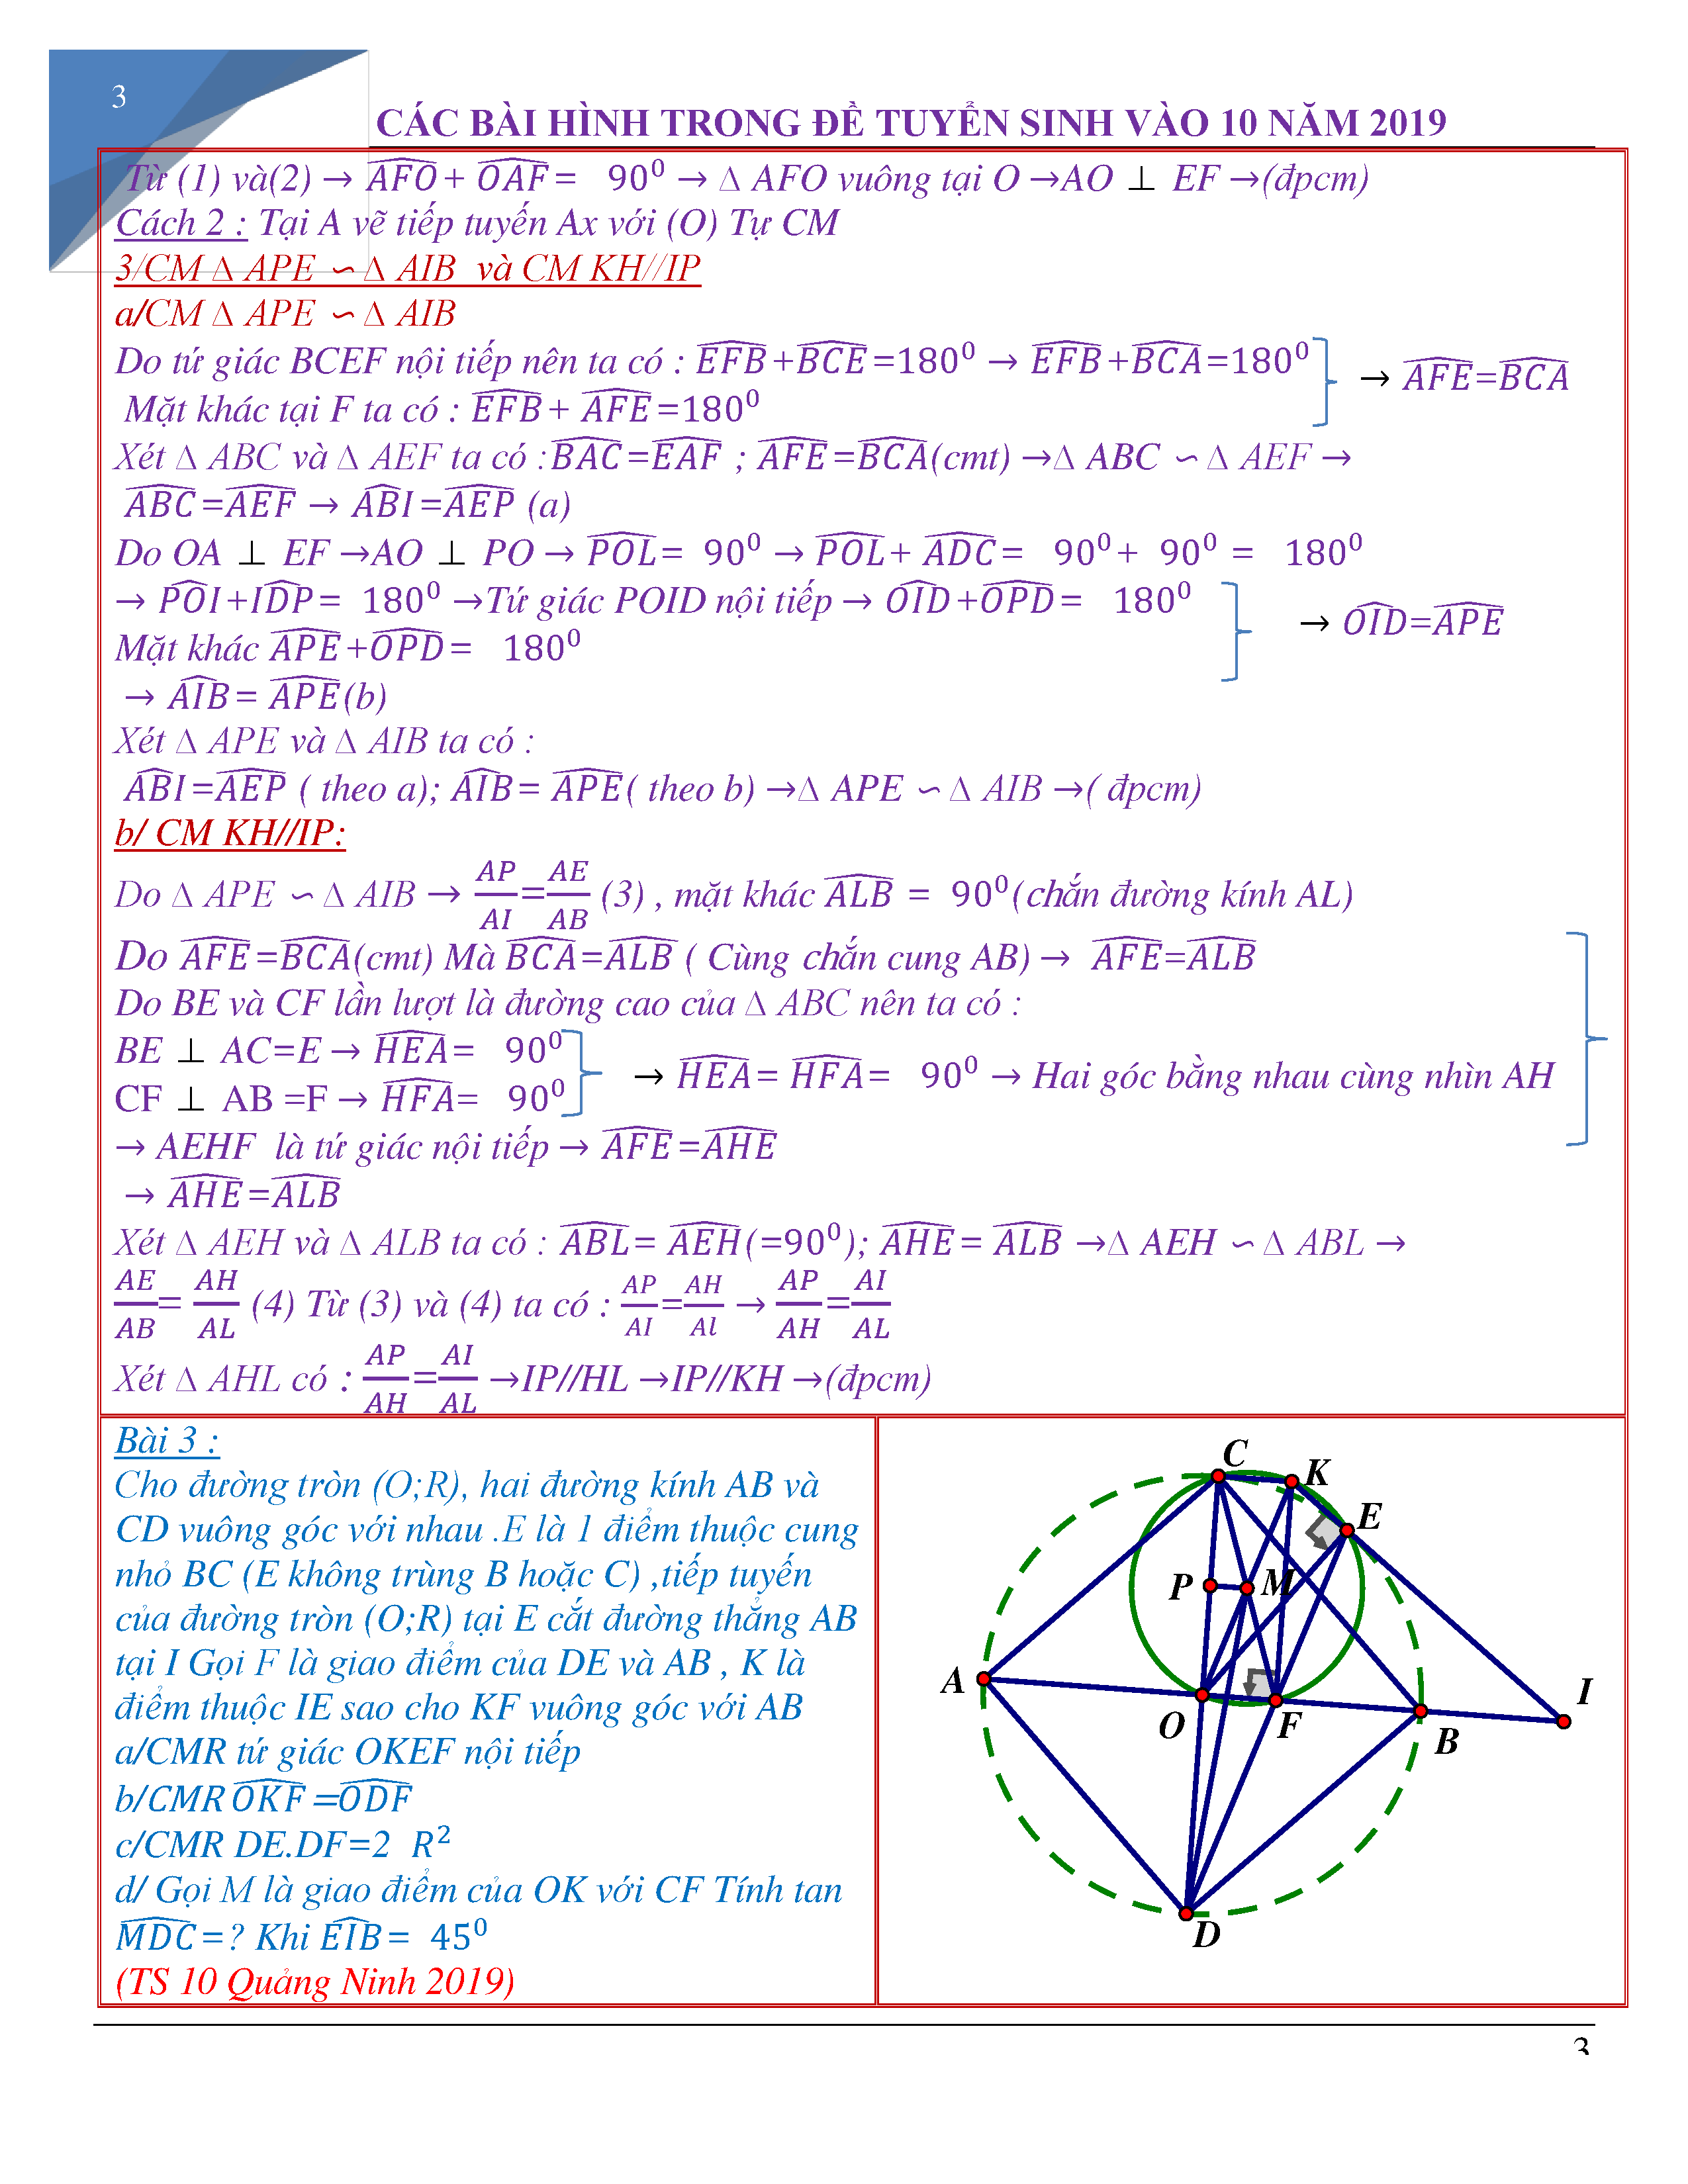 3
CÁC BÀI HÌNH TRONG ĐỀ TUYỂN SINH VÀO 10 NĂM 2019
Từ (1) và(2) → $\widehat{AFO}$+ $\widehat{OAF}$= 90⁰ → ∆ AFO vuông tại O →AO ⊥ EF →(đpcm)
Cách 2 : Tại A vẽ tiếp tuyến Ax với (O) Tự CM
3/CM ∆ APE ∽∆ AIB và CM KH//IP
a/CM ∆ APE ∽∆ AIB
Do tứ giác BCEF nội tiếp nên ta có : $\widehat{EFB}$+$\widehat{BCE}$=180⁰ → $\widehat{EFB}$+$\widehat{BCA}$=180⁰
→ $\widehat{AFE}$=$\widehat{BCA}$
Mặt khác tại F ta có : $\widehat{EFB}$+ $\widehat{AFE}$=180⁰
Xét ∆ ABC và ∆ AEF ta có :$\widehat{BAC}$=$\widehat{EAF}$ ; $\widehat{AFE}$=$\widehat{BCA}$(cmt) →∆ ABC ∽ ∆ AEF →
$\widehat{ABC}$=$\widehat{AEF}$ → $\widehat{ABI}$=$\widehat{AEP}$ (a)
Do OA ⊥ EF →AO ⊥ PO → $\widehat{POL}$= 90⁰ → $\widehat{POL}$+ $\widehat{ADC}$= 90⁰+ 90⁰ = 180⁰
→ $\widehat{POI}$+$\widehat{IDP}$= 180⁰ →Tứ giác POID nội tiếp → $\widehat{OID}$+$\widehat{OPD}$= 180⁰
→ $\widehat{OID}$=$\widehat{APE}$
Mặt khác $\widehat{APE}$+$\widehat{OPD}$= 180⁰
→ $\widehat{AIB}$= $\widehat{APE}$(b)
Xét ∆ APE và ∆ AIB ta có :
$\widehat{ABI}$=$\widehat{AEP}$ ( theo a); $\widehat{AIB}$= $\widehat{APE}$( theo b) →∆ APE ∽ ∆ AIB →( đpcm)
b/ CM KH//IP:
Do ∆ APE ∽ ∆ AIB → $\frac{AP}{AI}$=$\frac{AE}{AB}$ (3) , mặt khác $\widehat{ALB}$ = 90⁰(chắn đường kính AL)
Do $\widehat{AFE}$=$\widehat{BCA}$(cmt) Mà $\widehat{BCA}$=$\widehat{ALB}$ ( Cùng chắn cung AB) → $\widehat{AFE}$=$\widehat{ALB}$
Do BE và CF lần lượt là đường cao của ∆ ABC nên ta có :
BE ⊥ AC=E → $\widehat{HEA}$= 90⁰
→ $\widehat{HEA}$= $\widehat{HFA}$= 90⁰ → Hai góc bằng nhau cùng nhìn AH
CF ⊥ AB =F → $\widehat{HFA}$= 90⁰
→ AEHF là tứ giác nội tiếp → $\widehat{AFE}$=$\widehat{AHE}$
→ $\widehat{AHE}$=$\widehat{ALB}$
Xét ∆ AEH và ∆ ALB ta có : $\widehat{ABL}$= $\widehat{AEH}$(=90⁰); $\widehat{AHE}$= $\widehat{ALB}$ →∆ AEH ∽ ∆ ABL →
$\frac{AE}{AB}$= $\frac{AH}{AL}$ (4) Từ (3) và (4) ta có : $\frac{AP}{AI}$=$\frac{AH}{Al}$ → $\frac{AP}{AH}$=$\frac{AI}{AL}$
Xét ∆ AHL có : $\frac{AP}{AH}$=$\frac{AI}{AL}$ →IP//HL →IP//KH →(đpcm)
Bài 3 :
Cho đường tròn (O;R), hai đường kính AB và
CD vuông góc với nhau .E là 1 điểm thuộc cung
nhỏ BC (E không trùng B hoặc C) ,tiếp tuyến
của đường tròn (O;R) tại E cắt đường thẳng AB
tại I Gọi F là giao điểm của DE và AB , K là
điểm thuộc IE sao cho KF vuông góc với AB
a/CMR tứ giác OKEF nội tiếp
b/CMR $\widehat{OKF}$ =$\widehat{ODF}$
c/CMR DE.DF=2 R²
d/ Gọi M là giao điểm của OK với CF Tính tan
$\widehat{MDC}$=? Khi $\widehat{EIB}$= 45⁰
(TS 10 Quảng Ninh 2019)
C
K
E
P
M
A
I
O
F
B
D
3